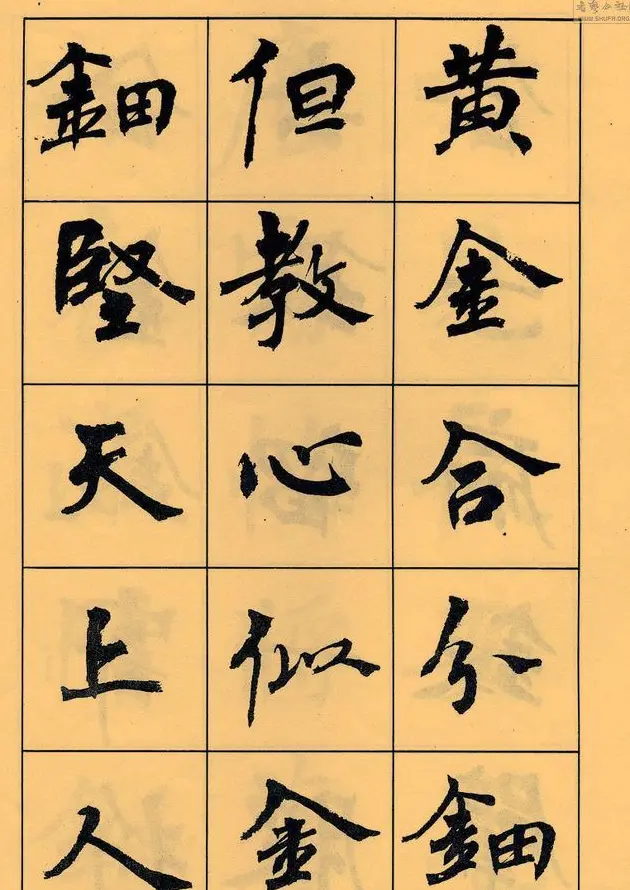 黄金合分鈿
但教心似金
鈿堅天上人